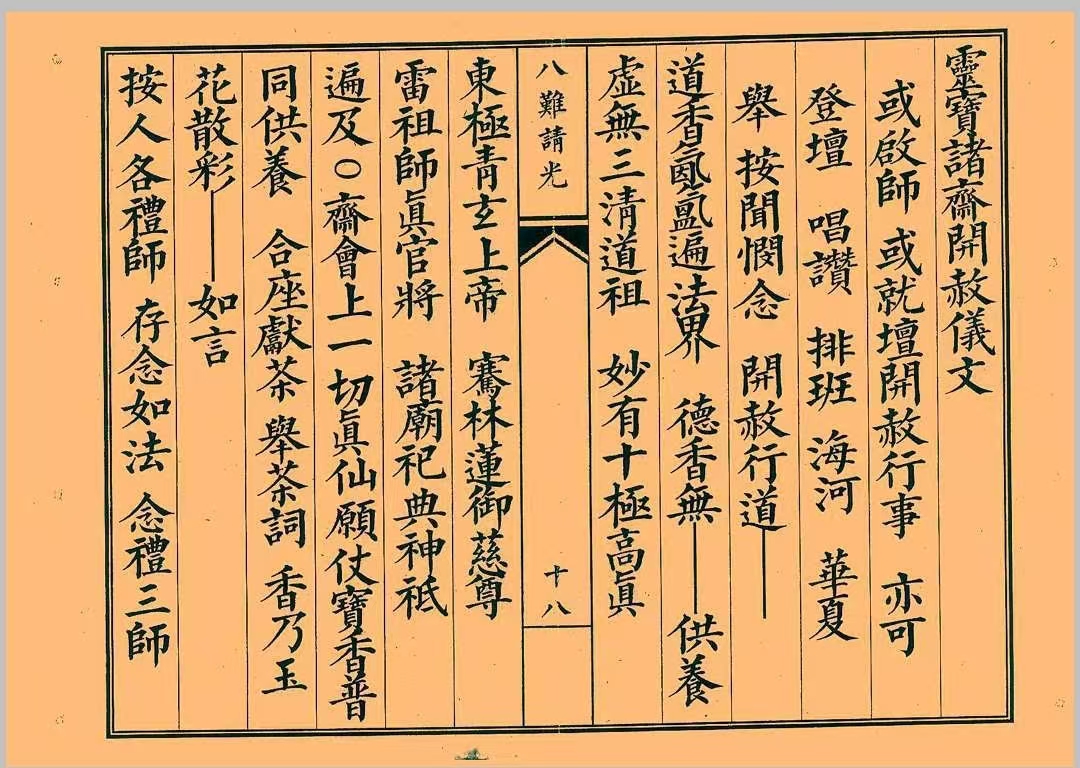 靈寶諸齋開赦儀文
或啟師 或就壇開赦行事 亦可
登壇 唱讚 排班 海河 華夏
舉 按聞憫念 開赦行道——
道香氤氳遍法界 德香無——供養
虛無三清道祖 妙有十極高眞
八難請光 十八
東極青玄上帝 騫林蓮御慈尊
雷祖師眞官將 諸廟祀典神祗
遍及〇齋會上一切眞仙願仗寶香普
同供養 合座獻茶 舉茶詞 香乃玉
花散彩——如言
按人各禮師 存念如法 念禮三師